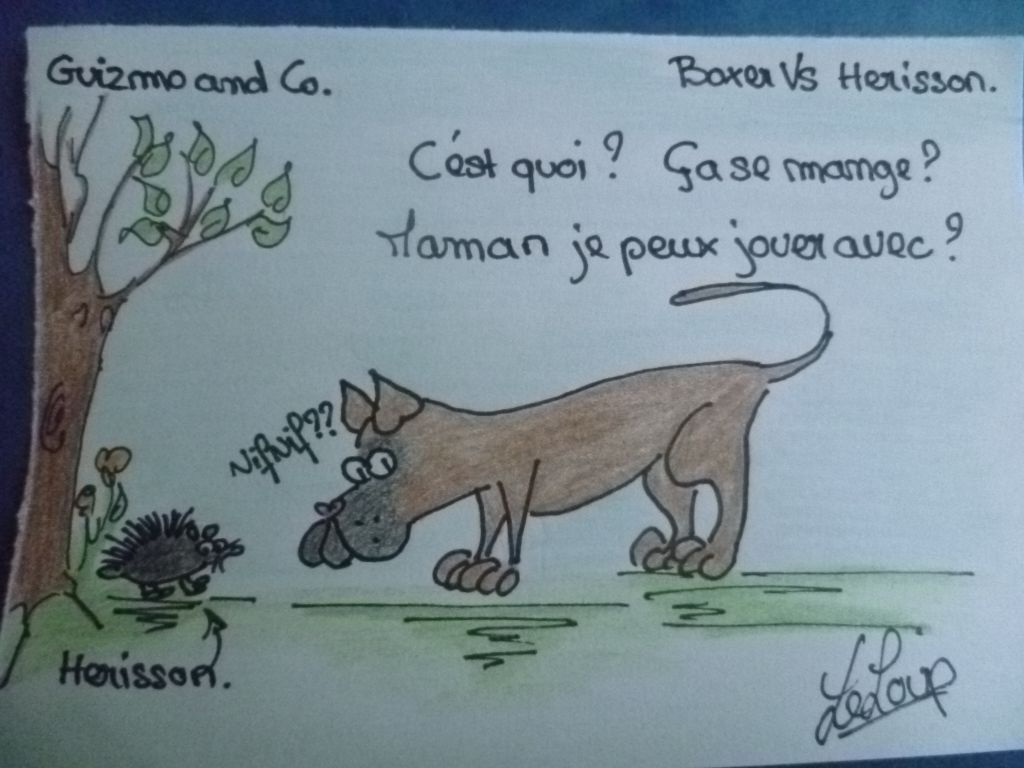 Guizmo and Co.
Boxer Vs Herisson.
C'est quoi? Ça se mange?
Maman je peux jouer avec?
Nif Nif??
Herisson.
LeLoup